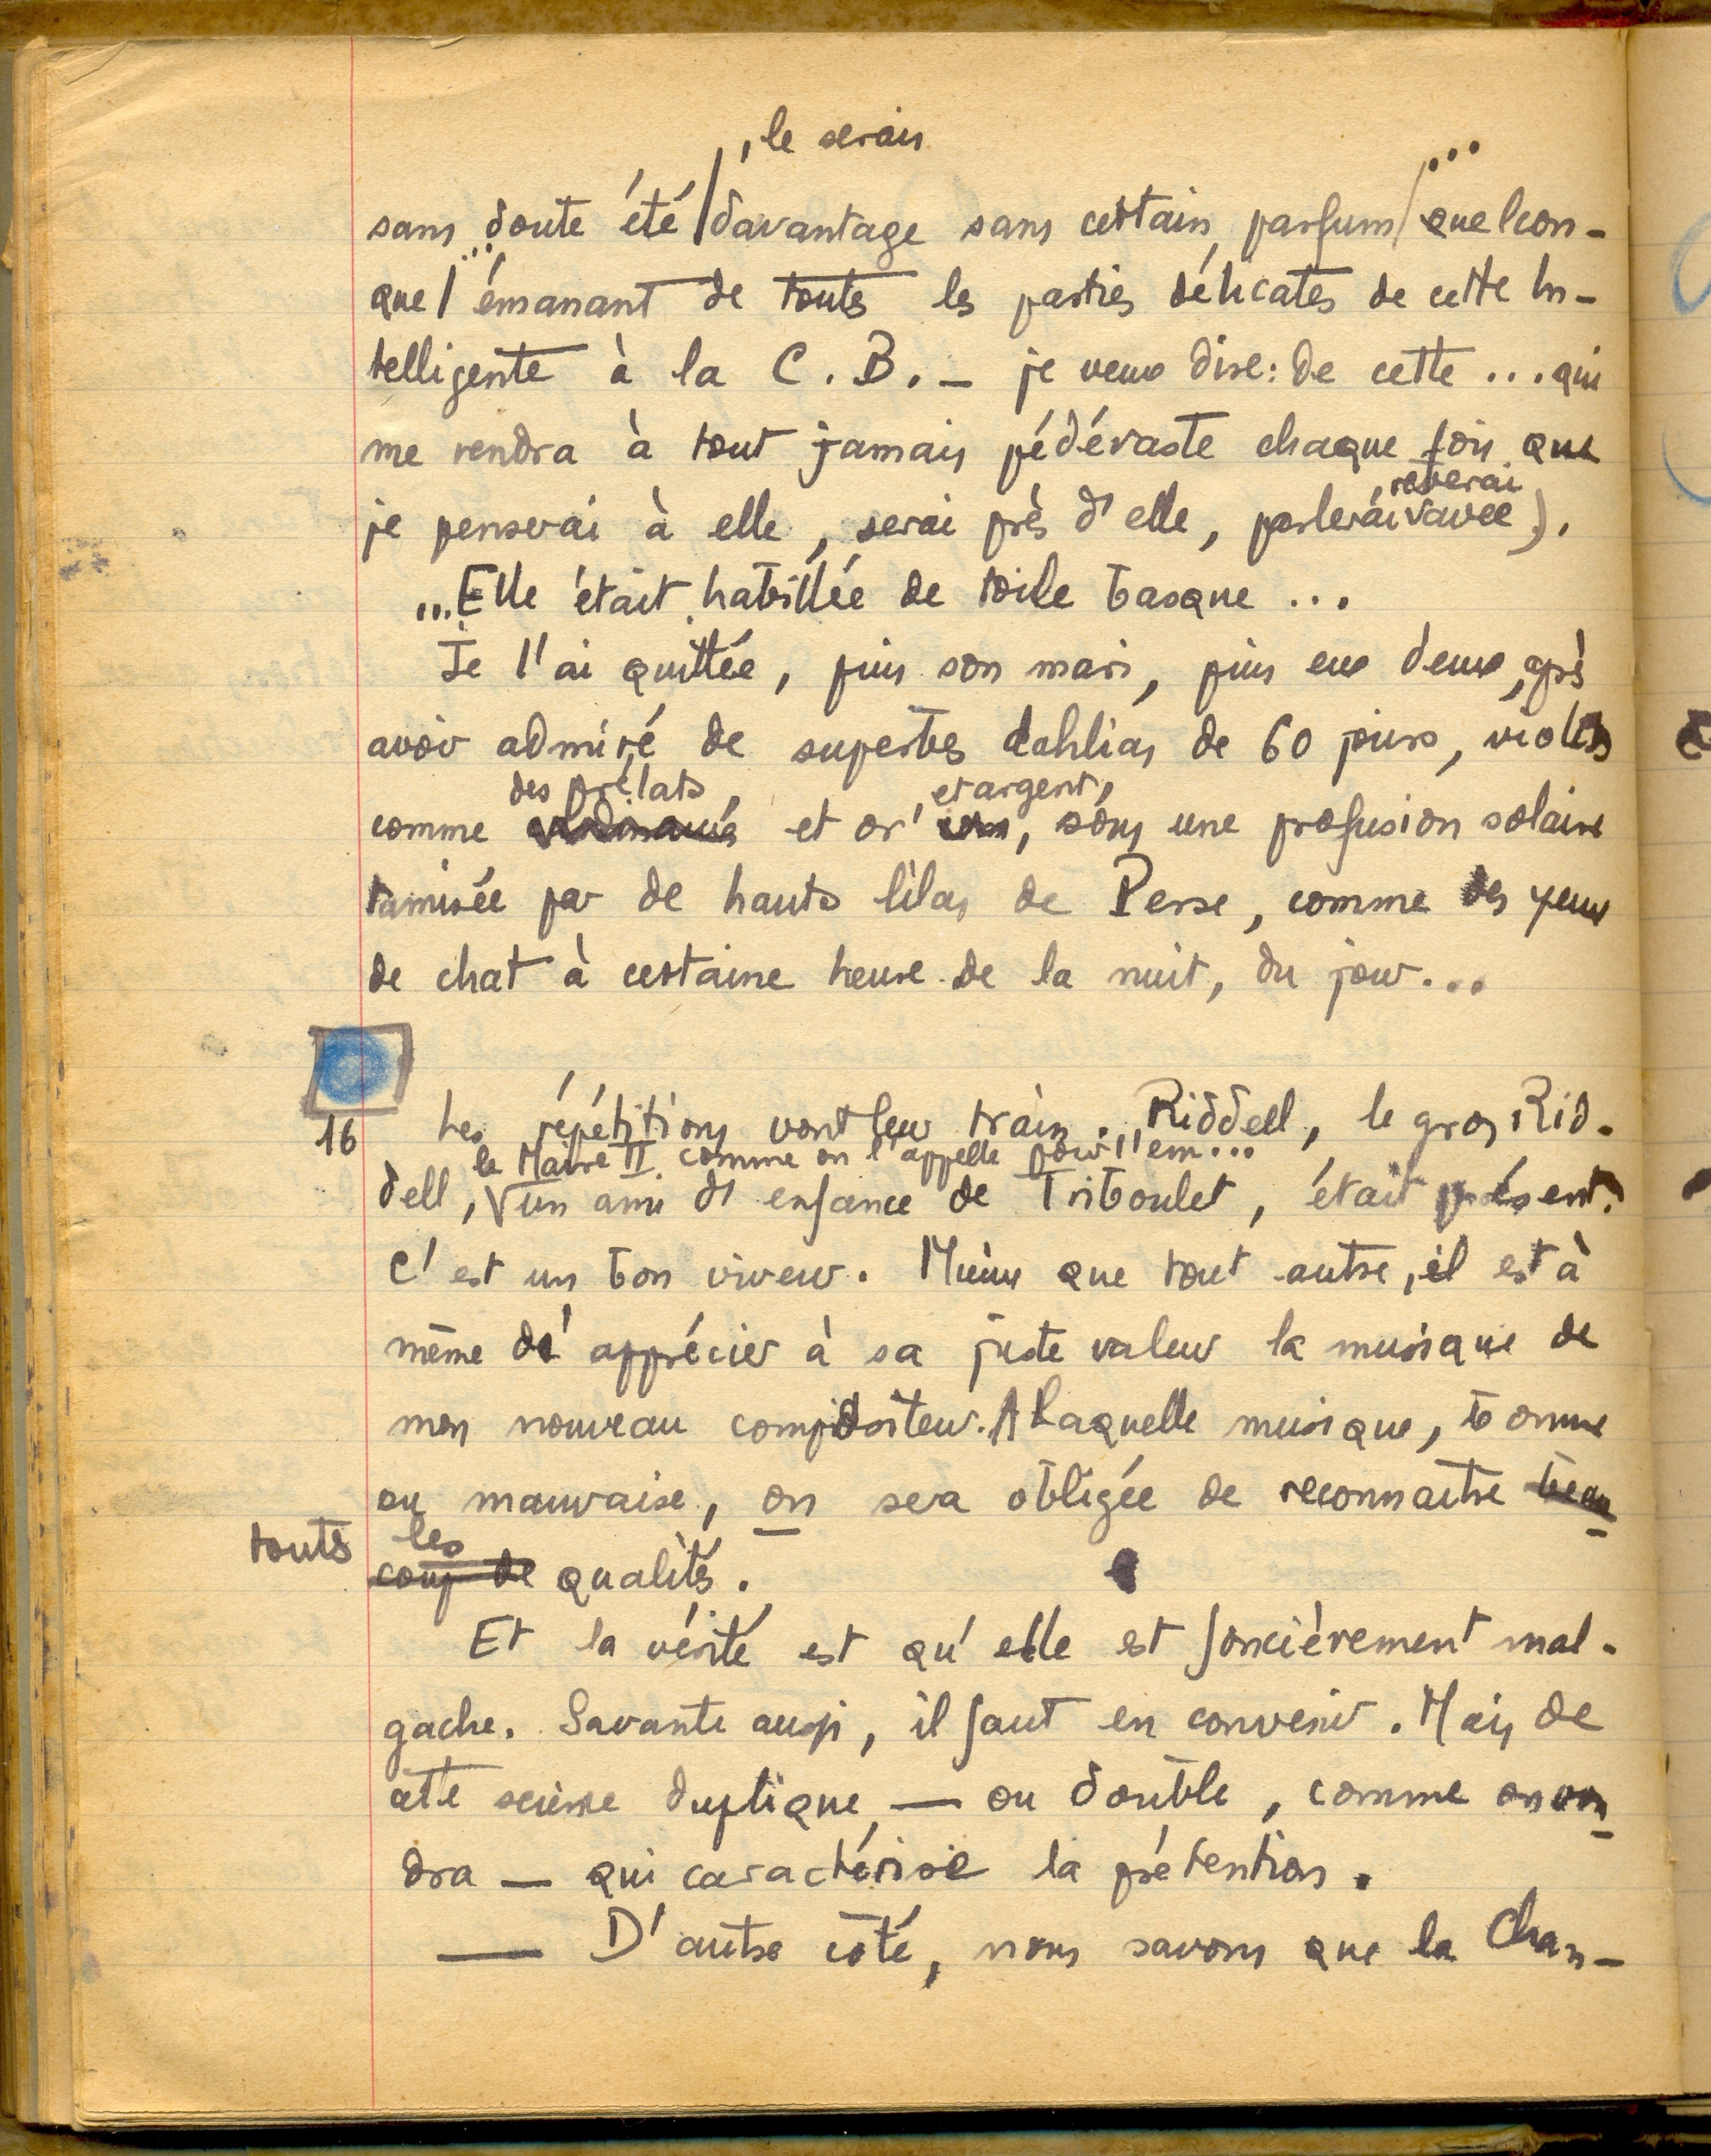 , le serais
sans doute été / davantage sans certain parfum / ... quelcon-
que / émanant de toutes les parties délicates de cette In-
telligente à la C. B. — je veux dire : de cette ... qui
me rendra à tout jamais pédéraste chaque fois que
rêverai
je penserai à elle, serai près d'elle, parlerai avec ).
... Elle était habillée de toile basque ...
Je l'ai quittée, puis son mari, puis eux deux, après
avoir admiré de superbes dahlias de 60 jours, violets
des prélats, et argent,
comme et or, sous une profusion solaire
tamisée par de hauts lilas de Perse, comme des yeux
de chat à certaine heure de la nuit, du jour...
16 Les répétitions vont leur train. Riddell, le gros Rid-
le Maire II comme on l'appelle pour l'em...
dell, un ami d'enfance de Triboulet, était présent.
C'est un bon viveur. Mieux que tout autre, il est à
même d'apprécier à sa juste valeur la musique de
mon nouveau compositeur. A laquelle musique, bonne
ou mauvaise, on sera obligée de reconnaitre beau
toutes les
coup de qualités.
Et la vérité est qu'elle est foncièrement mal-
gache. Savante aussi, il faut en convenir. Mais de
cette science duplique — ou double, comme on vou
dra — qui caractérise la prétention.
— D'autre côté, nous savons que la Chan-